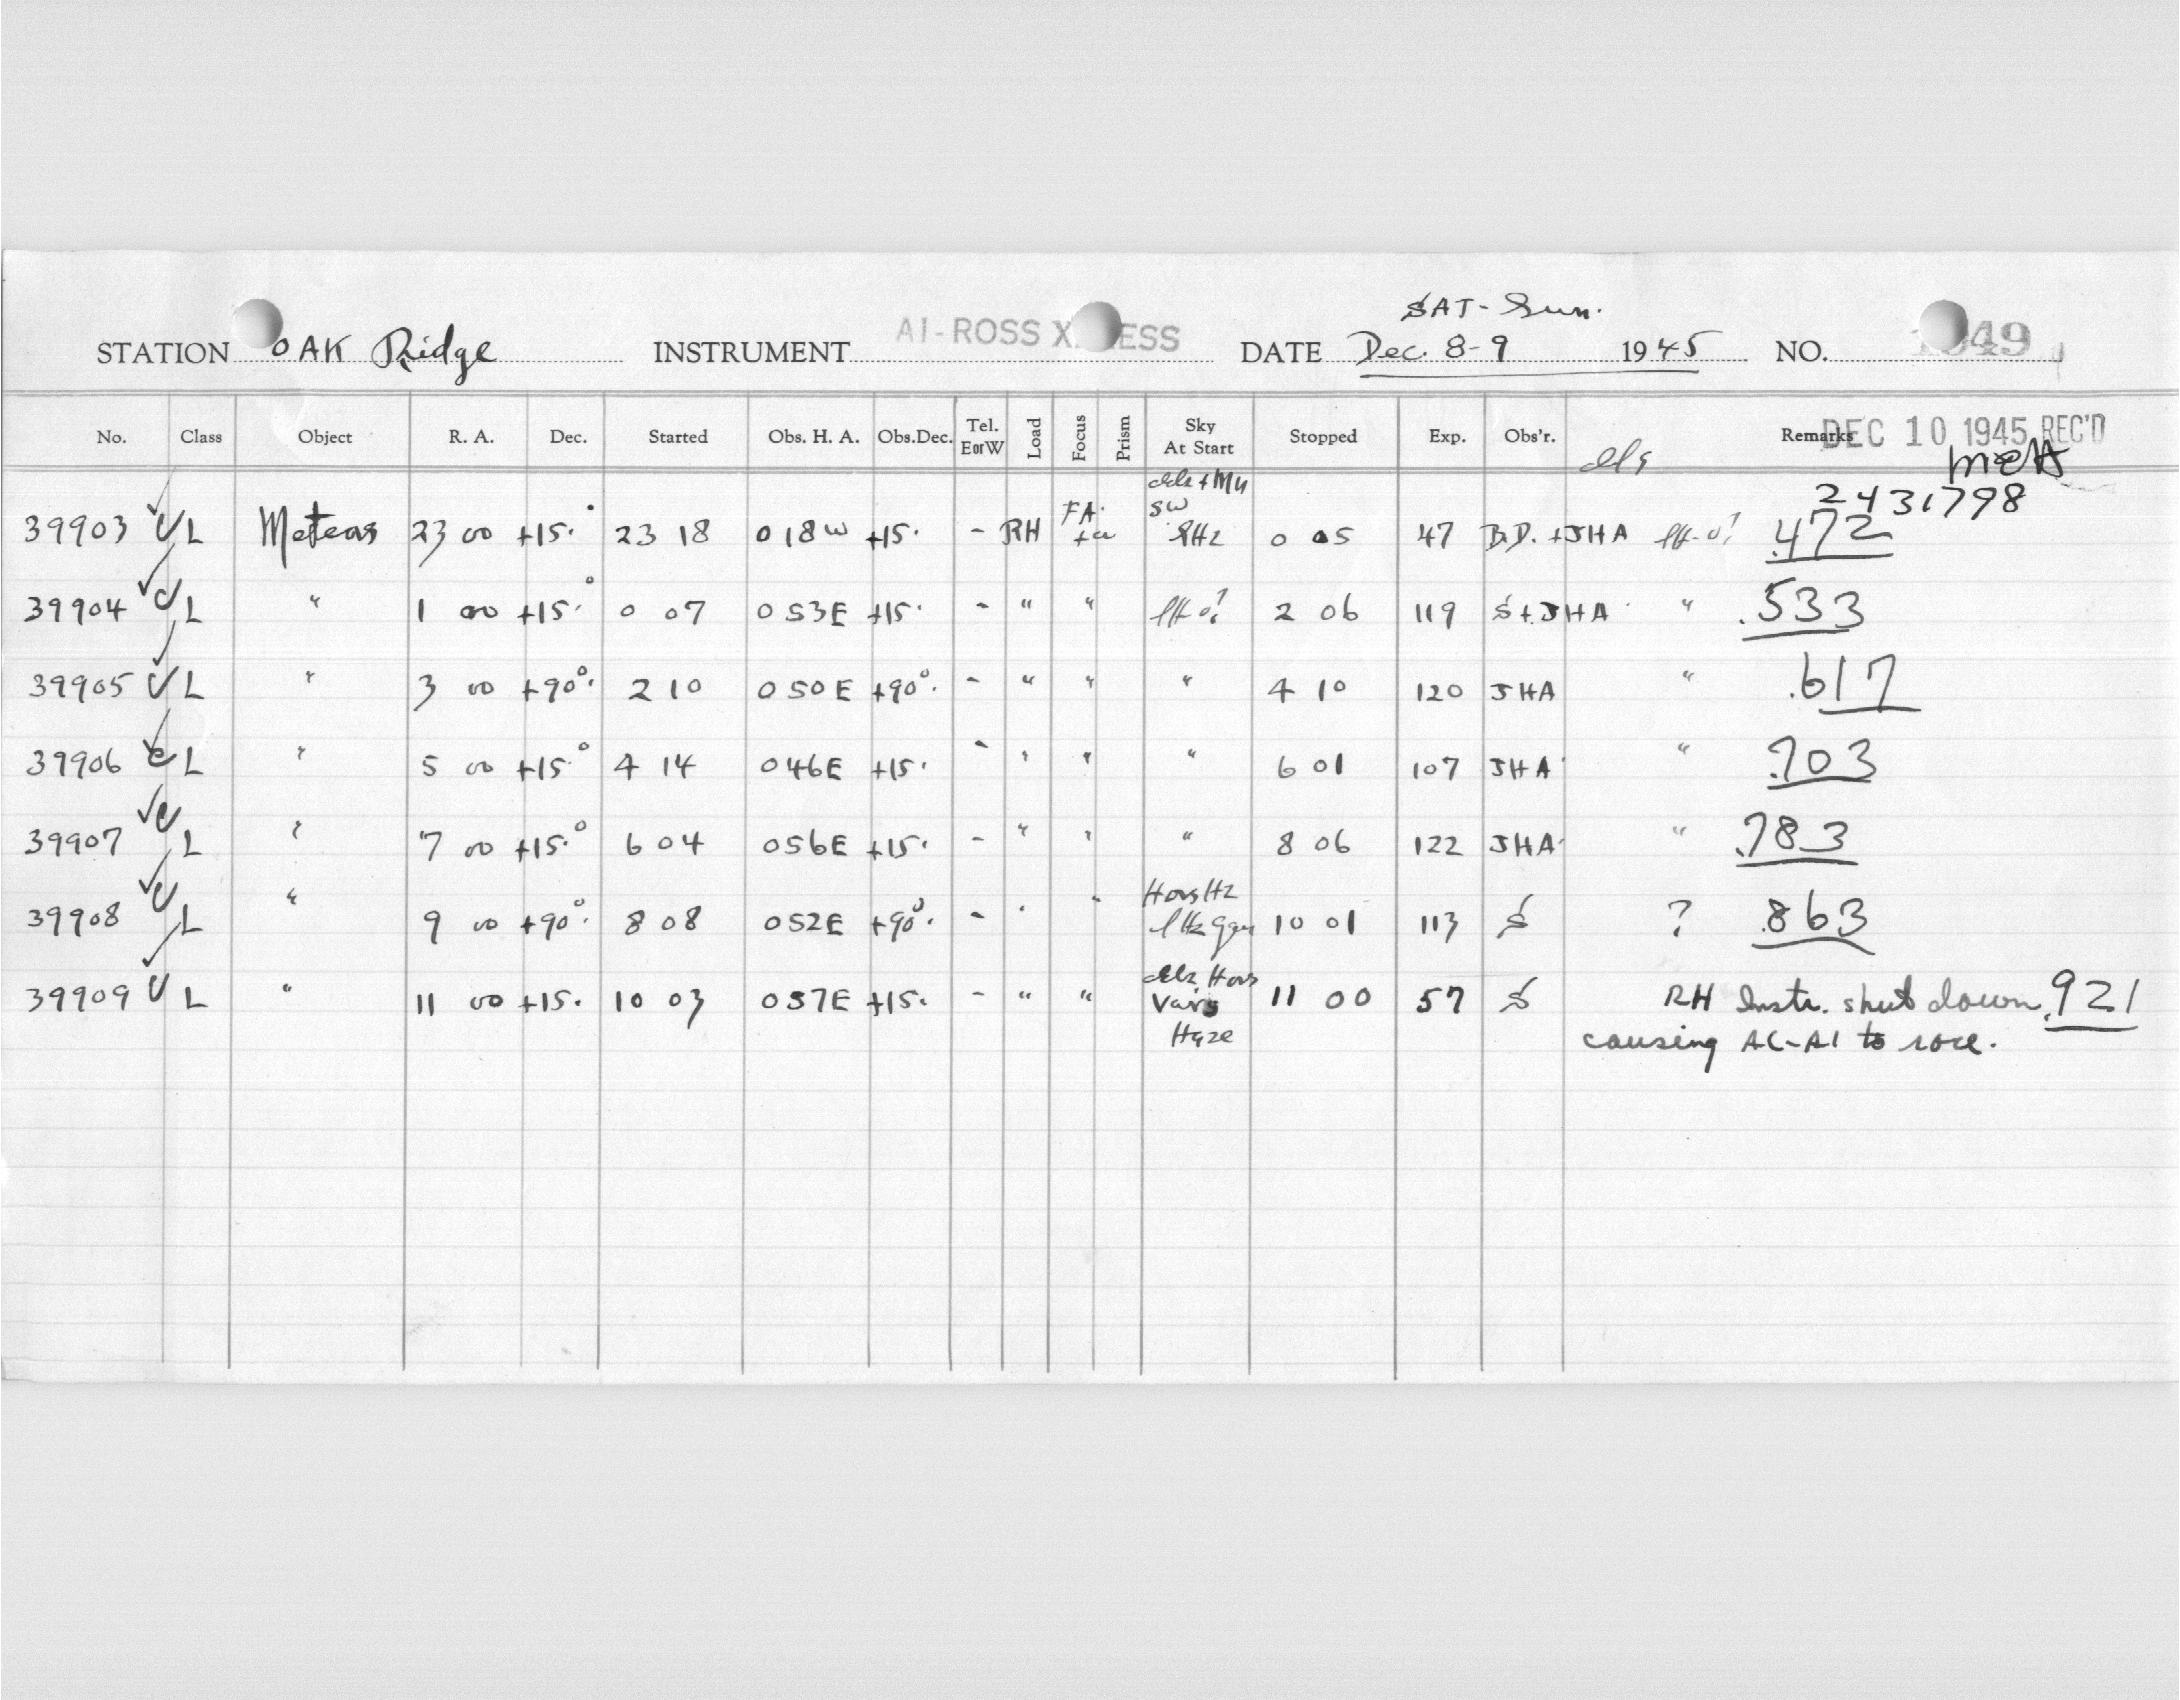 SAT - Sun.
STATION OAK Ridge INSTRUMENT AI-ROSS X ESS DATE Dec. 8-9 1945 NO. 49
No. Class Object R. A. Dec. Started Obs. H. A. Obs.Dec. Tel. E or W Load Focus Prism Sky At Start Stopped Exp. Obs'r. Remarks
DEC 10 1945 REC'D
2431798
39903 L Meteors 23 00 +15.° 23 18 0 18 W +15. - RH FA. SW 0 05 47 B.D. + JHA .472
39904 L " 1 00 +15.° 0 07 0 53 E +15. - " " 2 06 119 S + JHA " .533
39905 L " 3 00 +90°. 2 10 0 50 E +90°. - " " " 4 10 120 JHA " .617
39906 L " 5 00 +15.° 4 14 0 46 E +15. - " " " 6 01 107 JHA " .703
39907 L " 7 00 +15.° 6 04 0 56 E +15. - " " " 8 06 122 JHA " .783
39908 L " 9 00 +90°. 8 08 0 52 E +90°. - " " 10 01 113 S ? .863
39909 L " 11 00 +15. 10 03 0 57 E +15. - " " Haze 11 00 57 S RH Instr. shut down .921
causing AC-AI to race.